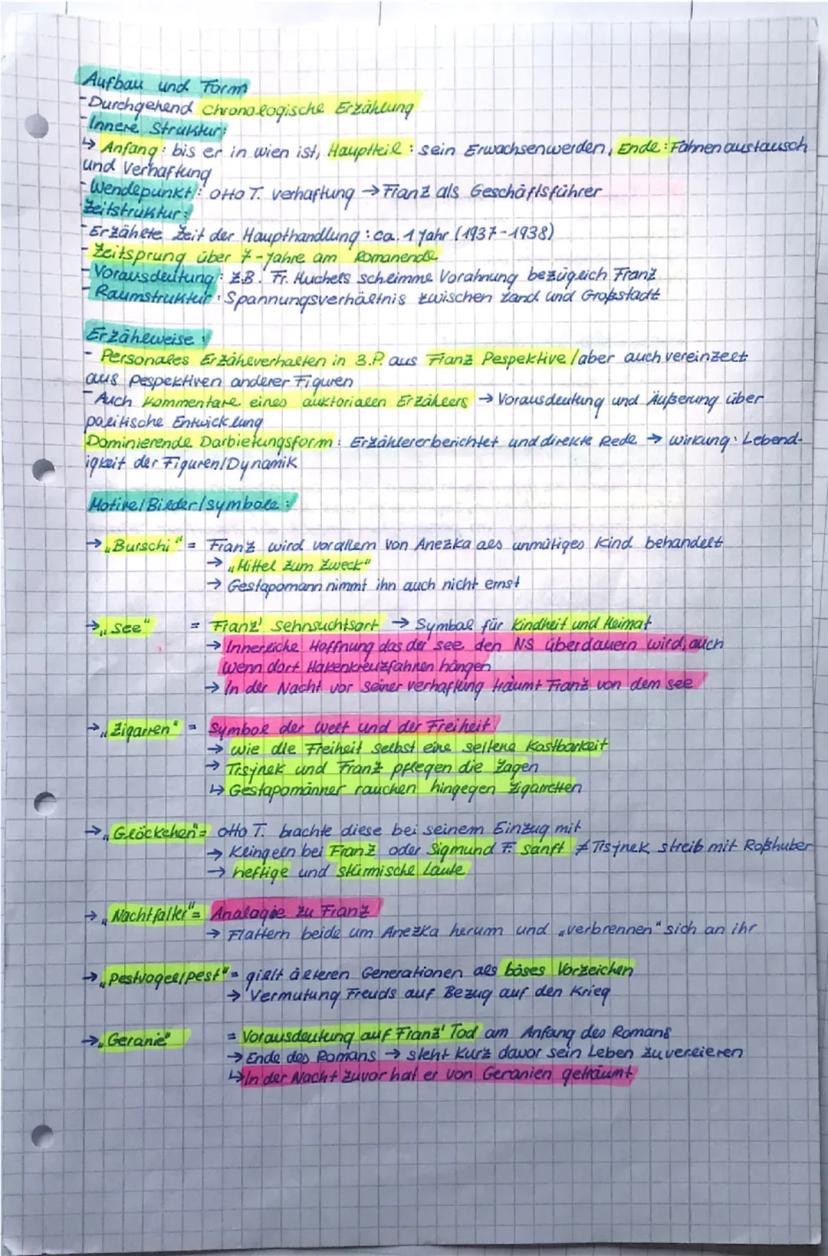 Aufbau und Form
-Durchgehend Chronologische Erzählung
-Innere Struktur:
↳ Anfang: bis er in wien ist, Hauptteil: sein Erwachsenwerden, Ende: Fahnenaustausch
und Verhaftung
-Wendepunkt: Otto T. verhaftung → Franz als Geschäftsführer
Zeitstruktur:
-Erzählte Zeit der Haupthandlung: ca. 1 Jahr (1937-1938)
-Zeitsprung über 7-Jahre am Romanende
-Vorausdeutung: z.B. Fr. Huchels schlimme Vorahnung bezüglich Franz
-Raumstruktur: Spannungsverhältnis zwischen Land und Großstadt
Erzählweise:
- Personales Erzählverhalten in 3.P. aus Franz Pespektive/aber auch vereinzelt
aus Pespektiven anderer Figuren
-Auch Kommentare eines auktorialen Erzählers → Vorausdeutung und Äußerung über
politische Entwicklung
Dominierende Darbietungsform: Erzählererberichtet und direkte Rede → wirkung: Lebend-
igkeit der Figuren/Dynamik
Motive/Bilder/symbole:
→„Burschi" = Franz wird vorallem von Anezka als unmütiges Kind behandelt
→ „Mittel zum Zweck"
→ Gestapomann nimmt ihn auch nicht ernst
→„See" = Franz' Sehnsuchtsort → Symbol für Kindheit und Heimat
→ Innerliche Hoffnung das der see den NS überdauern wird, auch
wenn dort Hakenkreuzfahnen hängen
→ In der Nacht vor seiner verhaftung träumt Franz von dem see
→„Zigarren" = Symbol der Welt und der Freiheit
→ wie die Freiheit selbst eine seltene Kostbarkeit
→ Trsjnek und Franz pflegen die Lagen
↳ Gestapomänner rauchen hingegen Zigaretten
→„Glöckchen"= Otto T. brachte diese bei seinem Einzug mit
→ Klingeln bei Franz oder Sigmund F. sanft ≠ Trsjnek streib mit Roßhuber
→ heftige und stürmische Laute
→„Nachtfalter"= Analogie zu Franz
→ Flattern beide um Anezka herum und „verbrennen" sich an ihr
→„Pestvogel/pest"= gielt älteren Generationen als böses Vorzeichen
→ Vermutung Freuds auf Bezug auf den Krieg
→„Geranie" = Vorausdeutung auf Franz' Tod am Anfang des Romans
→ Ende des Romans → steht kurz davor sein Leben zu verlieren
↳ In der Nacht zuvor hat er von Geranien geträumt